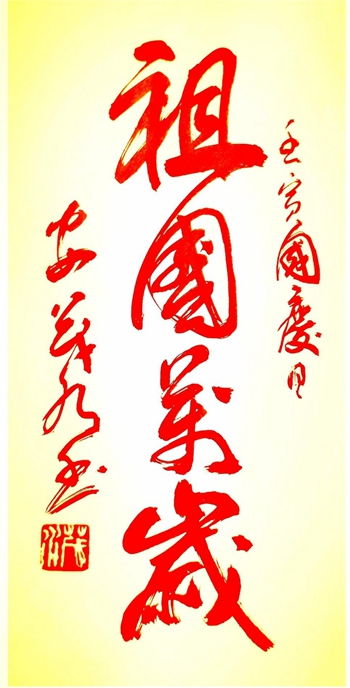 壬寅國慶日
祖國萬歲
安茂九書